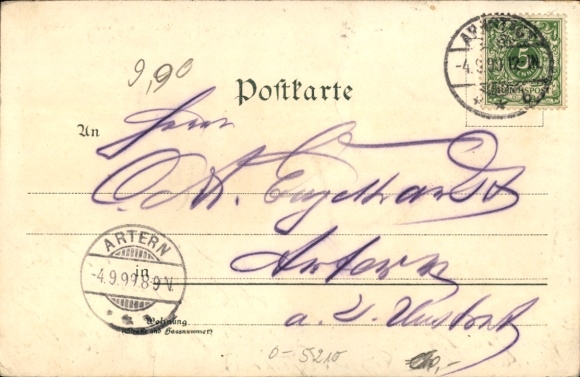 9,90
Postkarte
-4.9.99
5
REICHSPOST
An
Herrn
Engelhardt
Artern
a. d. Unstrut
ARTERN
in
-4.9.99.8-9V.
Wohnung
(Straße und Hausnummer)
0-5210